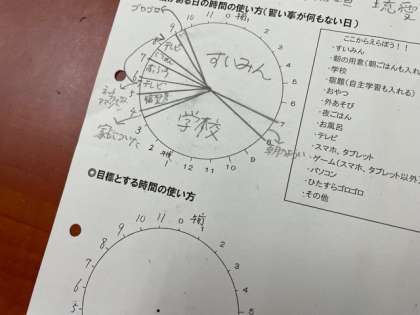 がある日の時間の使い方(習い事が何もない日)
ゴロゴロ
テレビ
すいみん
テレビ
学校
家につく
朝の用意
10 11 0 午前 1
2
3
4
5
6
7
8
9
10
11
12
午後
1
2
3
4
5
6
7
9
ここからえらぼう!!
・すいみん
・朝の用意(朝ごはんも入れ
・学校
・宿題(自主学習も入れる)
・おやつ
・外あそび
・夜ごはん
・お風呂
・テレビ
・スマホ、タブレット
・ゲーム(スマホ、タブレット以外
・パソコン
・ひたすらゴロゴロ
・その他
◎目標とする時間の使い方
10 11 0 午前 1
9
2
8
3
7
6
4
5
5